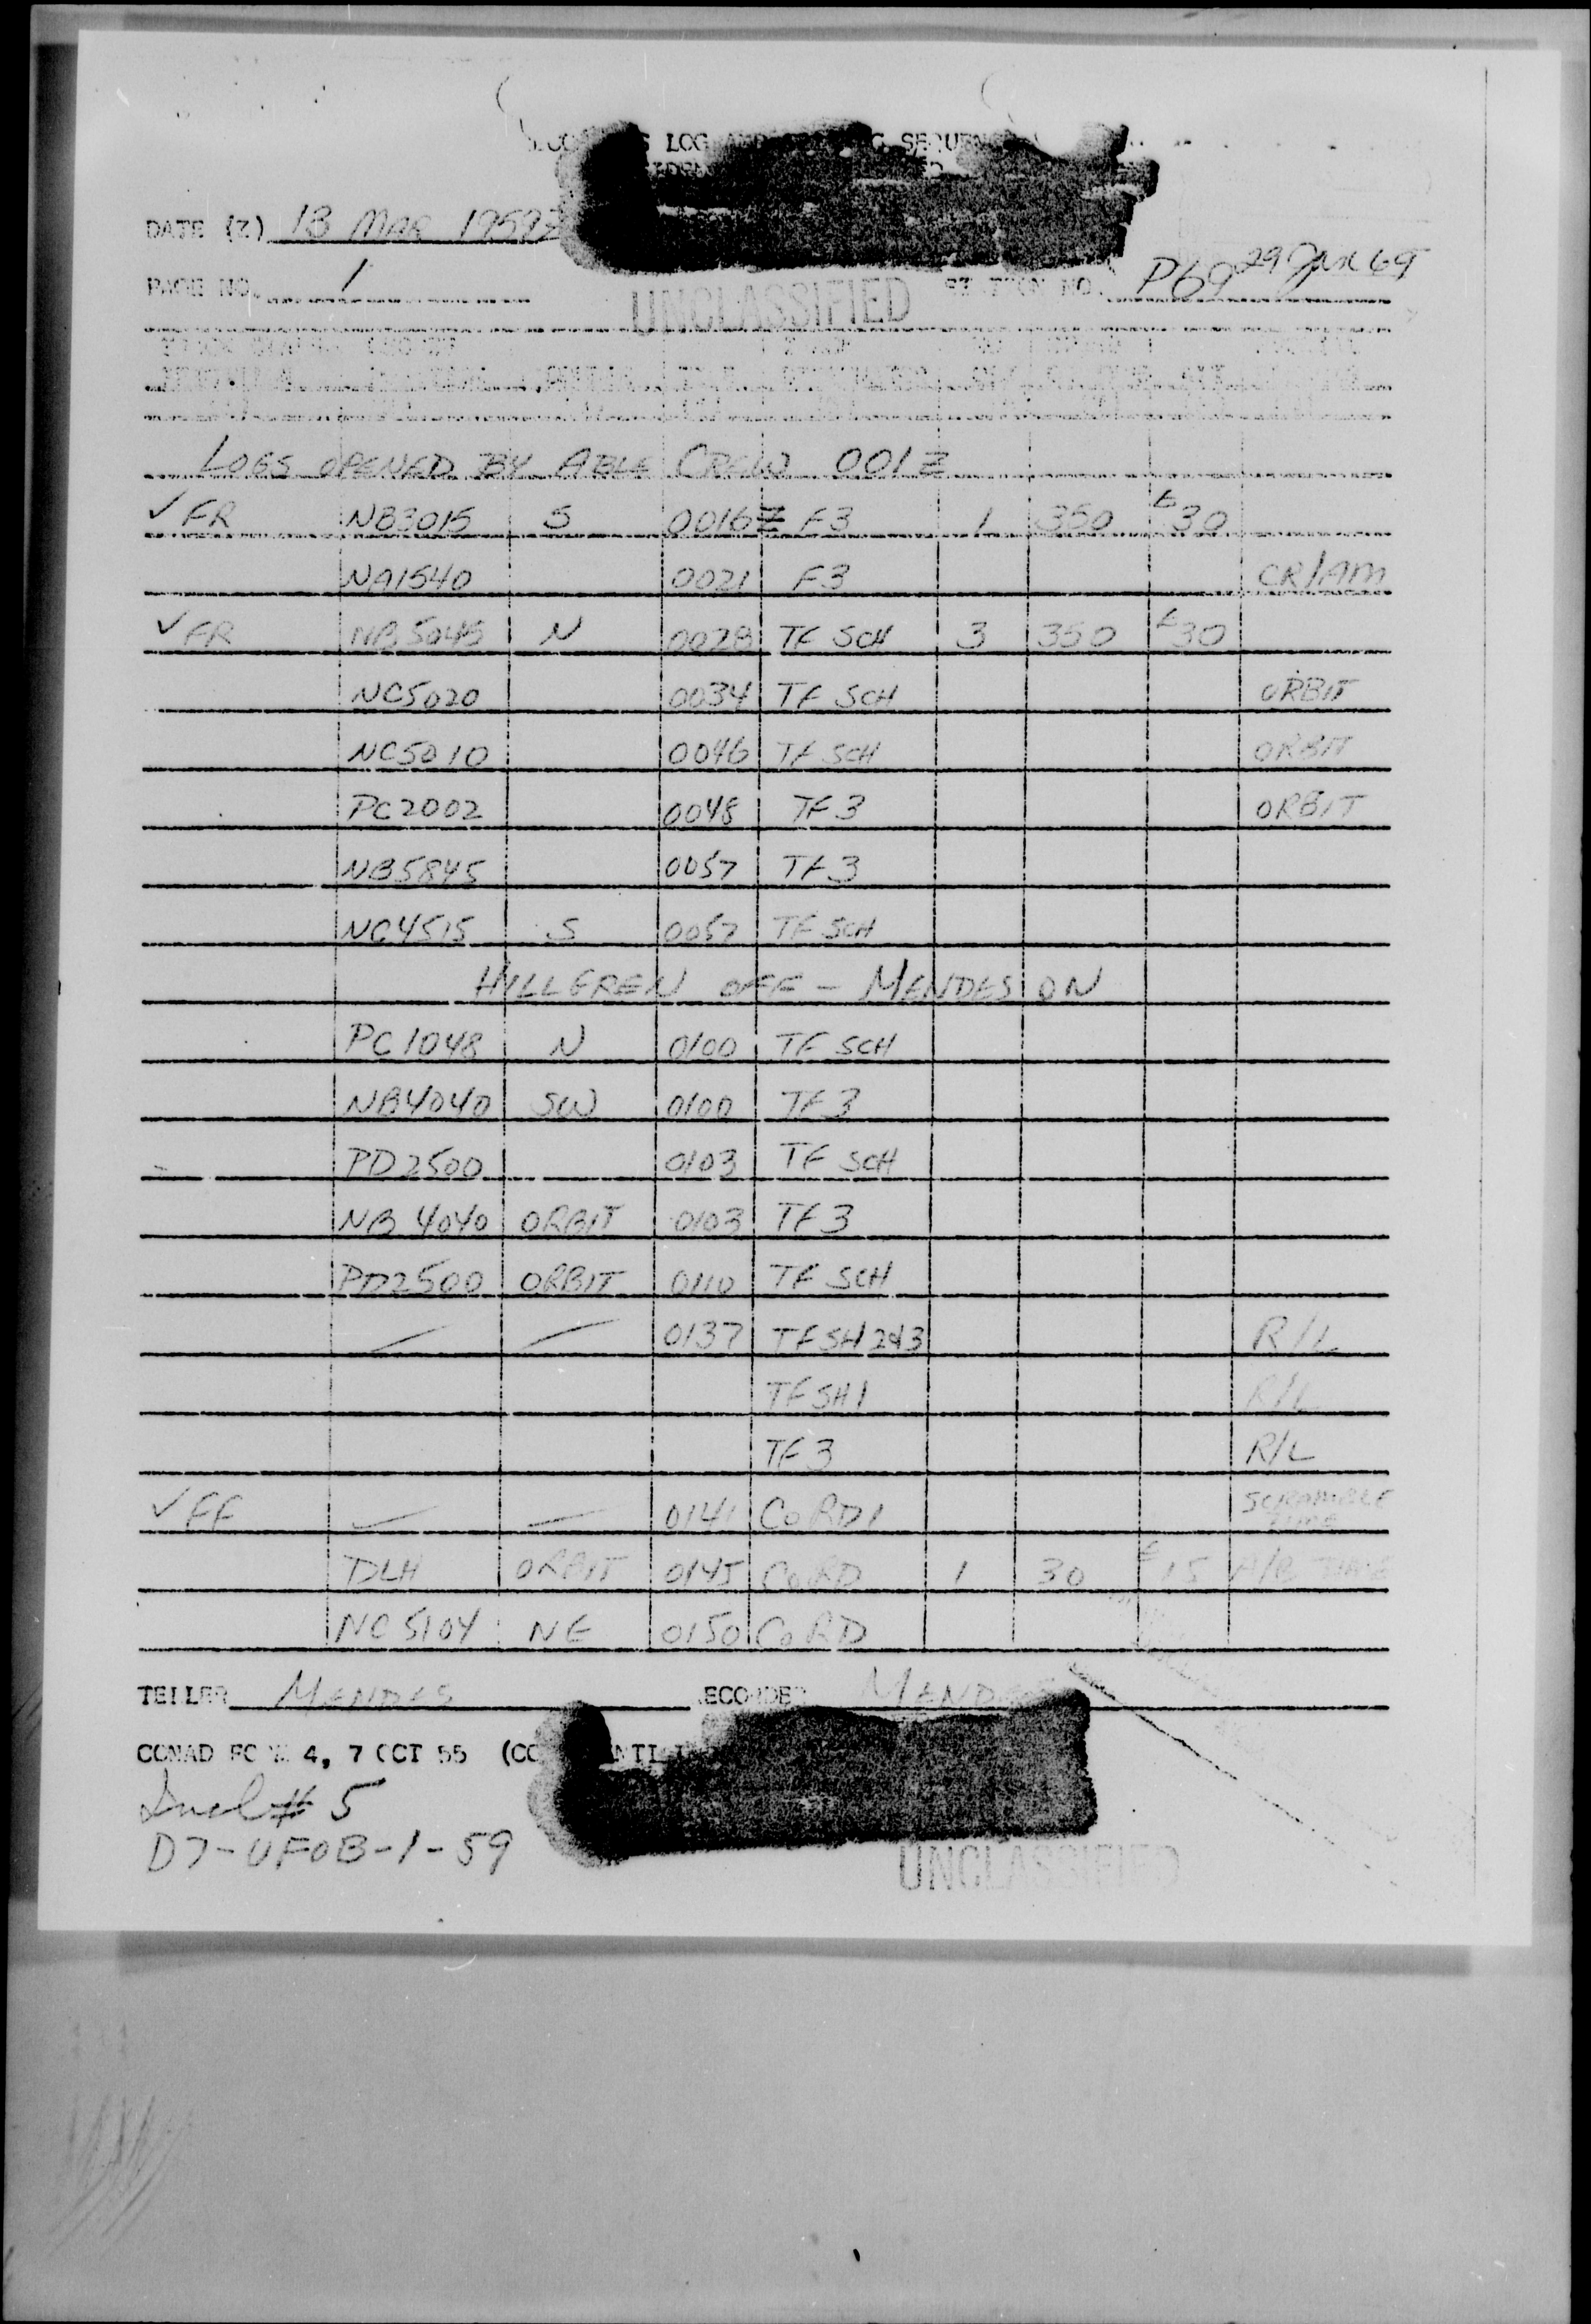 LOG SEQUEN
DATE (Z) 13 MAR 1959Z
PAGE NO. 1 NO. P69 29 Jan 69
UNCLASSIFIED
LOGS OPENED BY ABLE CREW 001Z
✓ FR NB3015 S 0016Z F3 1 350 E30
NA1540 0021 F3 CR/AM
✓ FR NB5045 N 0028 TF SCH 3 350 E30
NC5020 0034 TF SCH ORBIT
NC5010 0046 TF SCH ORBIT
PC2002 0048 TF3 ORBIT
NB5845 0057 TF3
NC4515 S 0057 TF SCH
HILLGREN OFF - MENDES ON
PC1048 N 0100 TF SCH
NB4040 SW 0100 TF3
PD2500 0103 TF SCH
NB4040 ORBIT 0103 TF3
PD2500 ORBIT 0110 TF SCH
— — 0137 TFSH2&3 R/L
TFSH1 R/L
TF3 R/L
✓ FF — — 0141 CoRD1 SCRAMBLE TIME
DLH ORBIT 0145 CoRD 1 30 E15 A/B TIME
NC5104 NE 0150 CoRD
TELLER MENDES RECORDER MENDES
CONAD FORM 4, 7 OCT 55
Incl # 5
D7-UFOB-1-59
UNCLASSIFIED